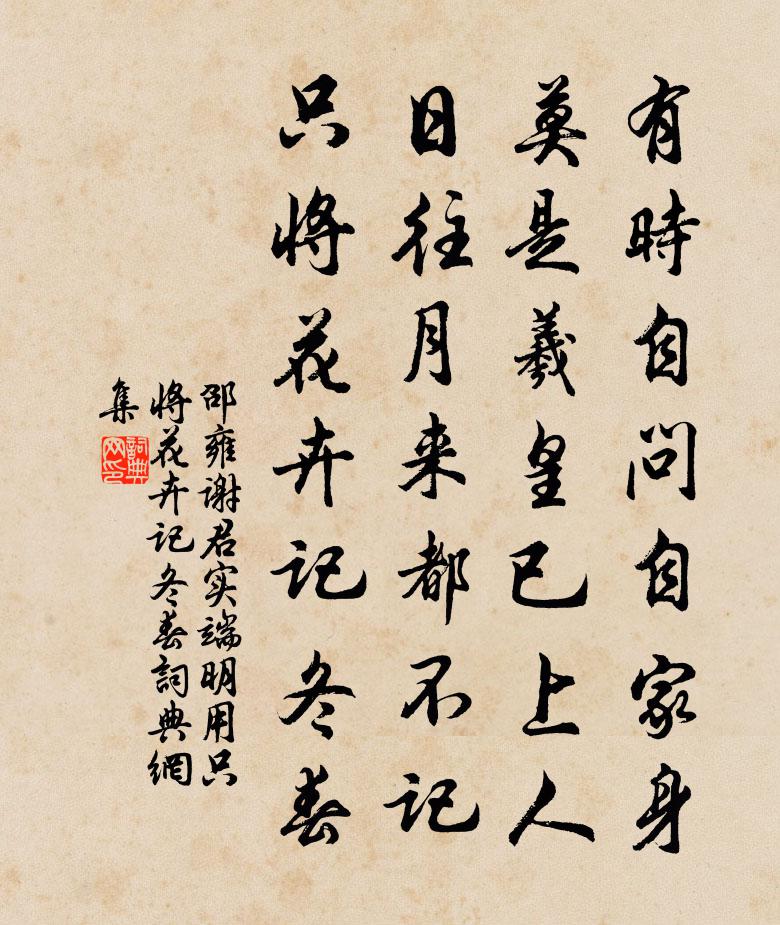 有時自問自家身
莫是羲皇已上人
日往月来都不記
只將花卉記冬春
邵雍谢君实端明用只
將花卉記冬春詞典網
集
詞典网印